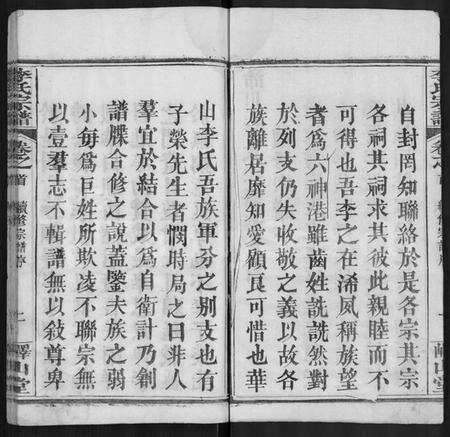 自封罔知聯絡於是各宗其宗
各祠其祠求其彼此親睦而不
可得也吾李之在浠夙稱族望
者為六神港雖齒姓詵詵然對
於列支仍失收敬之義以故各
族離居靡知愛顧良可惜也華
山李氏吾族軍分之別支也有
子榮先生者憫時局之日非人
羣宜於結合以為自衛計乃創
譜牒合修之說蓋鑒夫族之弱
小每為巨姓所欺凌不聯宗無
以壹羣志不輯譜無以敍尊卑
李氏宗譜
卷之首
續修宗譜序
一
嶧山堂